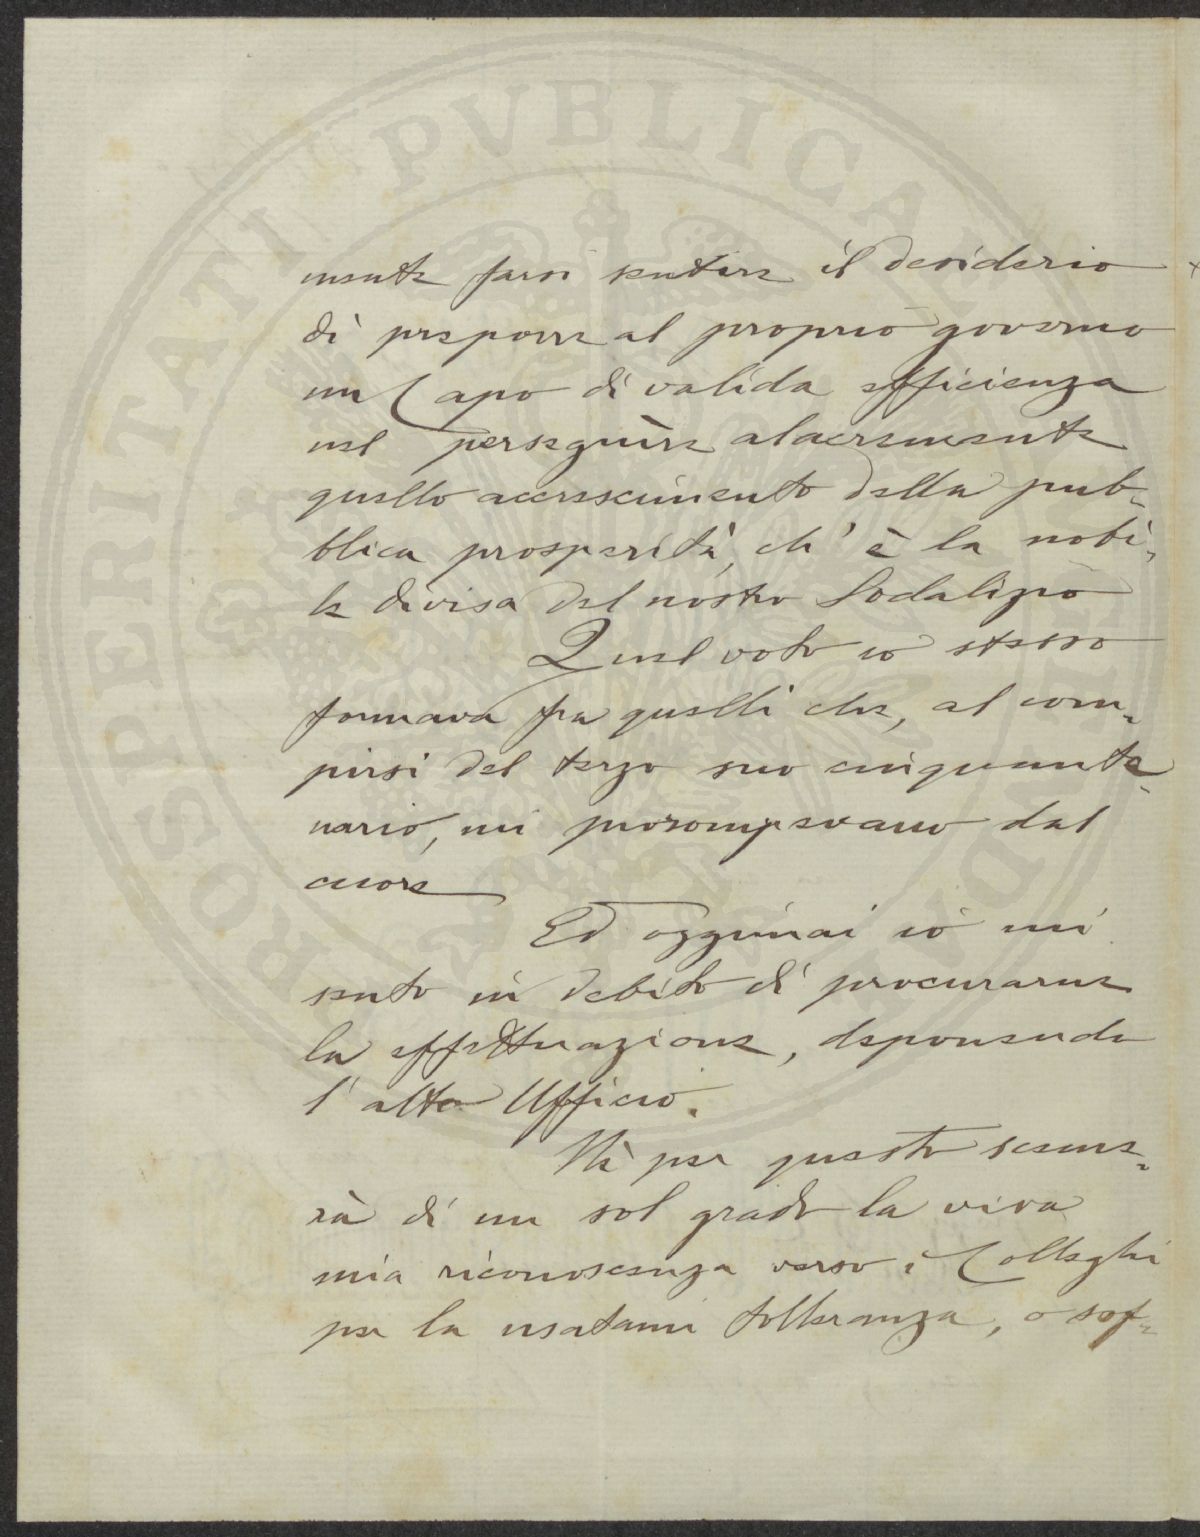 mente farsi sentire il desiderio
di preporre al proprio governo
un Capo di valida efficienza
nel perseguire alacremente
quello accrescimento della pub-
blica prosperità, ch' è la nobi-
le divisa del nostro Sodalizio
Quel voto io stesso
formava fra quelli che, al com-
pirsi del terzo suo cinquante-
nario, mi prorompevano dal
cuore
Ed oggimai io mi
sento in debito di procurarne
la effettuazione, deponendo
l'alto Ufficio.
Nè per questo sceme-
rà di un sol grado la viva
mia riconoscenza verso i Colleghi
per la usatami tolleranza, o sof-
PROSPERITATI PVBLICAE